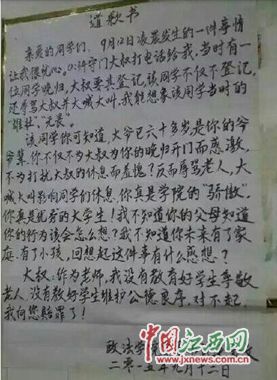 道歉书
亲爱的同学们，9月12日凌晨发生的一件事情
让我很忧心。公济守门大叔打电话给我，当时有一
位同学晚归，大叔要其登记，该同学不仅不登记，
还辱骂大叔并大喊大叫，我能想象该同学当时的
"雄壮"、"光景"。
该同学你可知道，大爷已六十多岁是你的爷
爷辈，你不仅不为大叔为你的晚归开门而感激，
不为打扰大叔的休息而羞愧？反而辱骂老人，大
喊大叫影响同学们休息，你真是学院的"骄傲"，
你真是优秀的大学生！我不知道你的父母知道
你的行为该会怎么想？我不知道你未来有了家
庭，有了小孩，回想起这件事有什么感想？
大叔：作为老师，我没有教育好学生孝敬
老人，没有教好学生维护公德良序，对不起，
我向您赔罪了！
政法学
二零一五年九月十二日
中国江西网